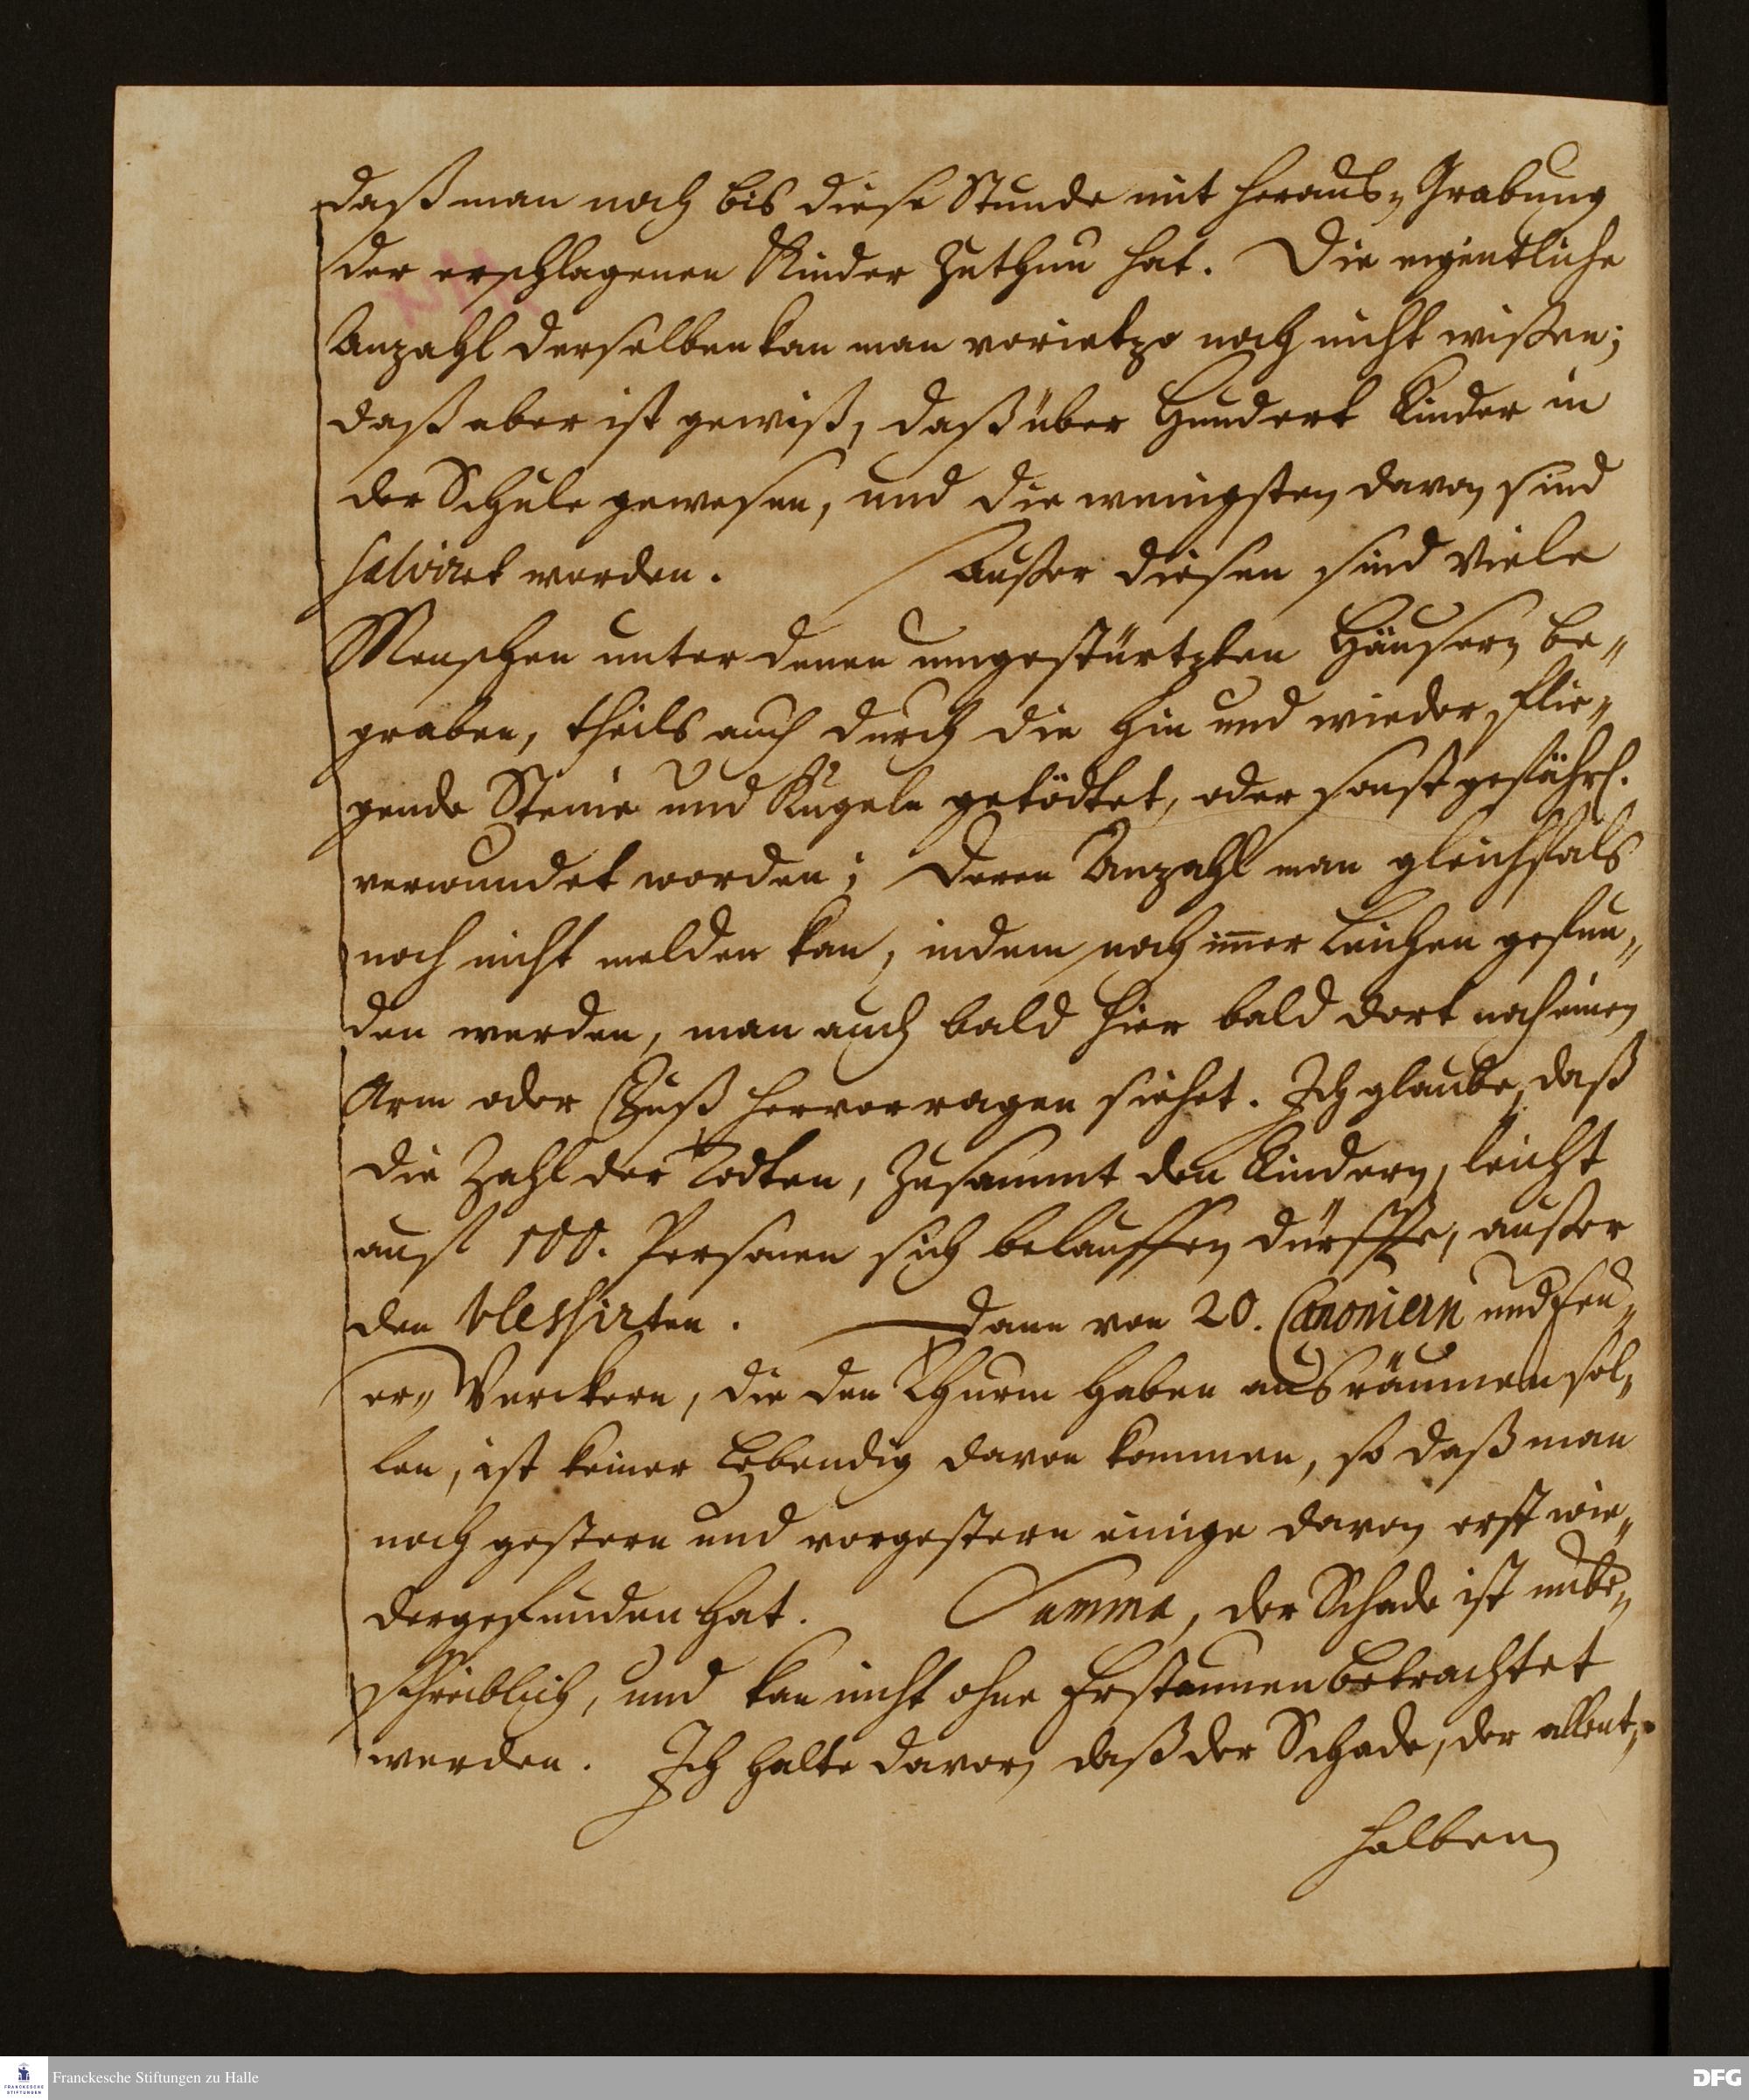 daß man noch bis diese Stunde mit heraus-Grabung
der erschlagenen Kinder zuthun hat. Die eigentliche
Anzahl derselben kan man vorietzo noch nicht wißen;
daß aber ist gewiß, daß über Hundert Kinder in
der Schule gewesen, und die wenigsten davon sind
salviret worden. Außer diesen sind viele
Menschen unter denen umgestürtzten Häusern be-
graben, theils auch durch die hin und wieder flie-
gende Steine und Kugeln getödtet, oder sonst gefährl.
verwundet worden; deren Anzahl man gleichfals
noch nicht melden kan, indem noch im̄er Leichen gefun-
den werden, man auch bald hier bald dort noch einen
Arm oder Fuß hervorragen siehet. Ich glaube, daß
die Zahl der Todten, zusammt den Kindern, leicht
auf 100. Personen sich belauffen dürffte, außer
den blessirten. Dann von 20. Canoniern und Feu-
er-Werckern, die den Thurm haben ausräumen sol-
len, ist keiner Lebendig davon kommen, so daß man
noch gestern und vorgestern einige davon erst wie-
dergefunden hat. Summa, der Schade ist unbe-
schreiblich, und kan nicht ohne Erstaunen betrachtet
werden. Ich halte davor, daß der Schade, der allent-
halben
Franckesche Stiftungen zu Halle
FRANCKESCHE STIFTUNGEN
DFG